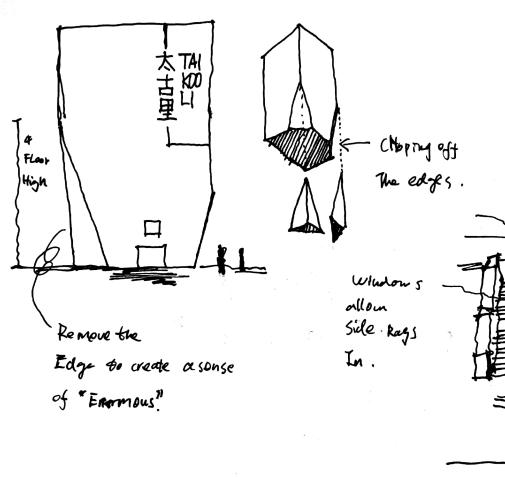 太古里
TAI
KOO
LI
4
Floor
High
Chopping off
The edges.
Windows
allow
Side Rays
In.
Remove the
Edge to create a sense
of "Enormous".